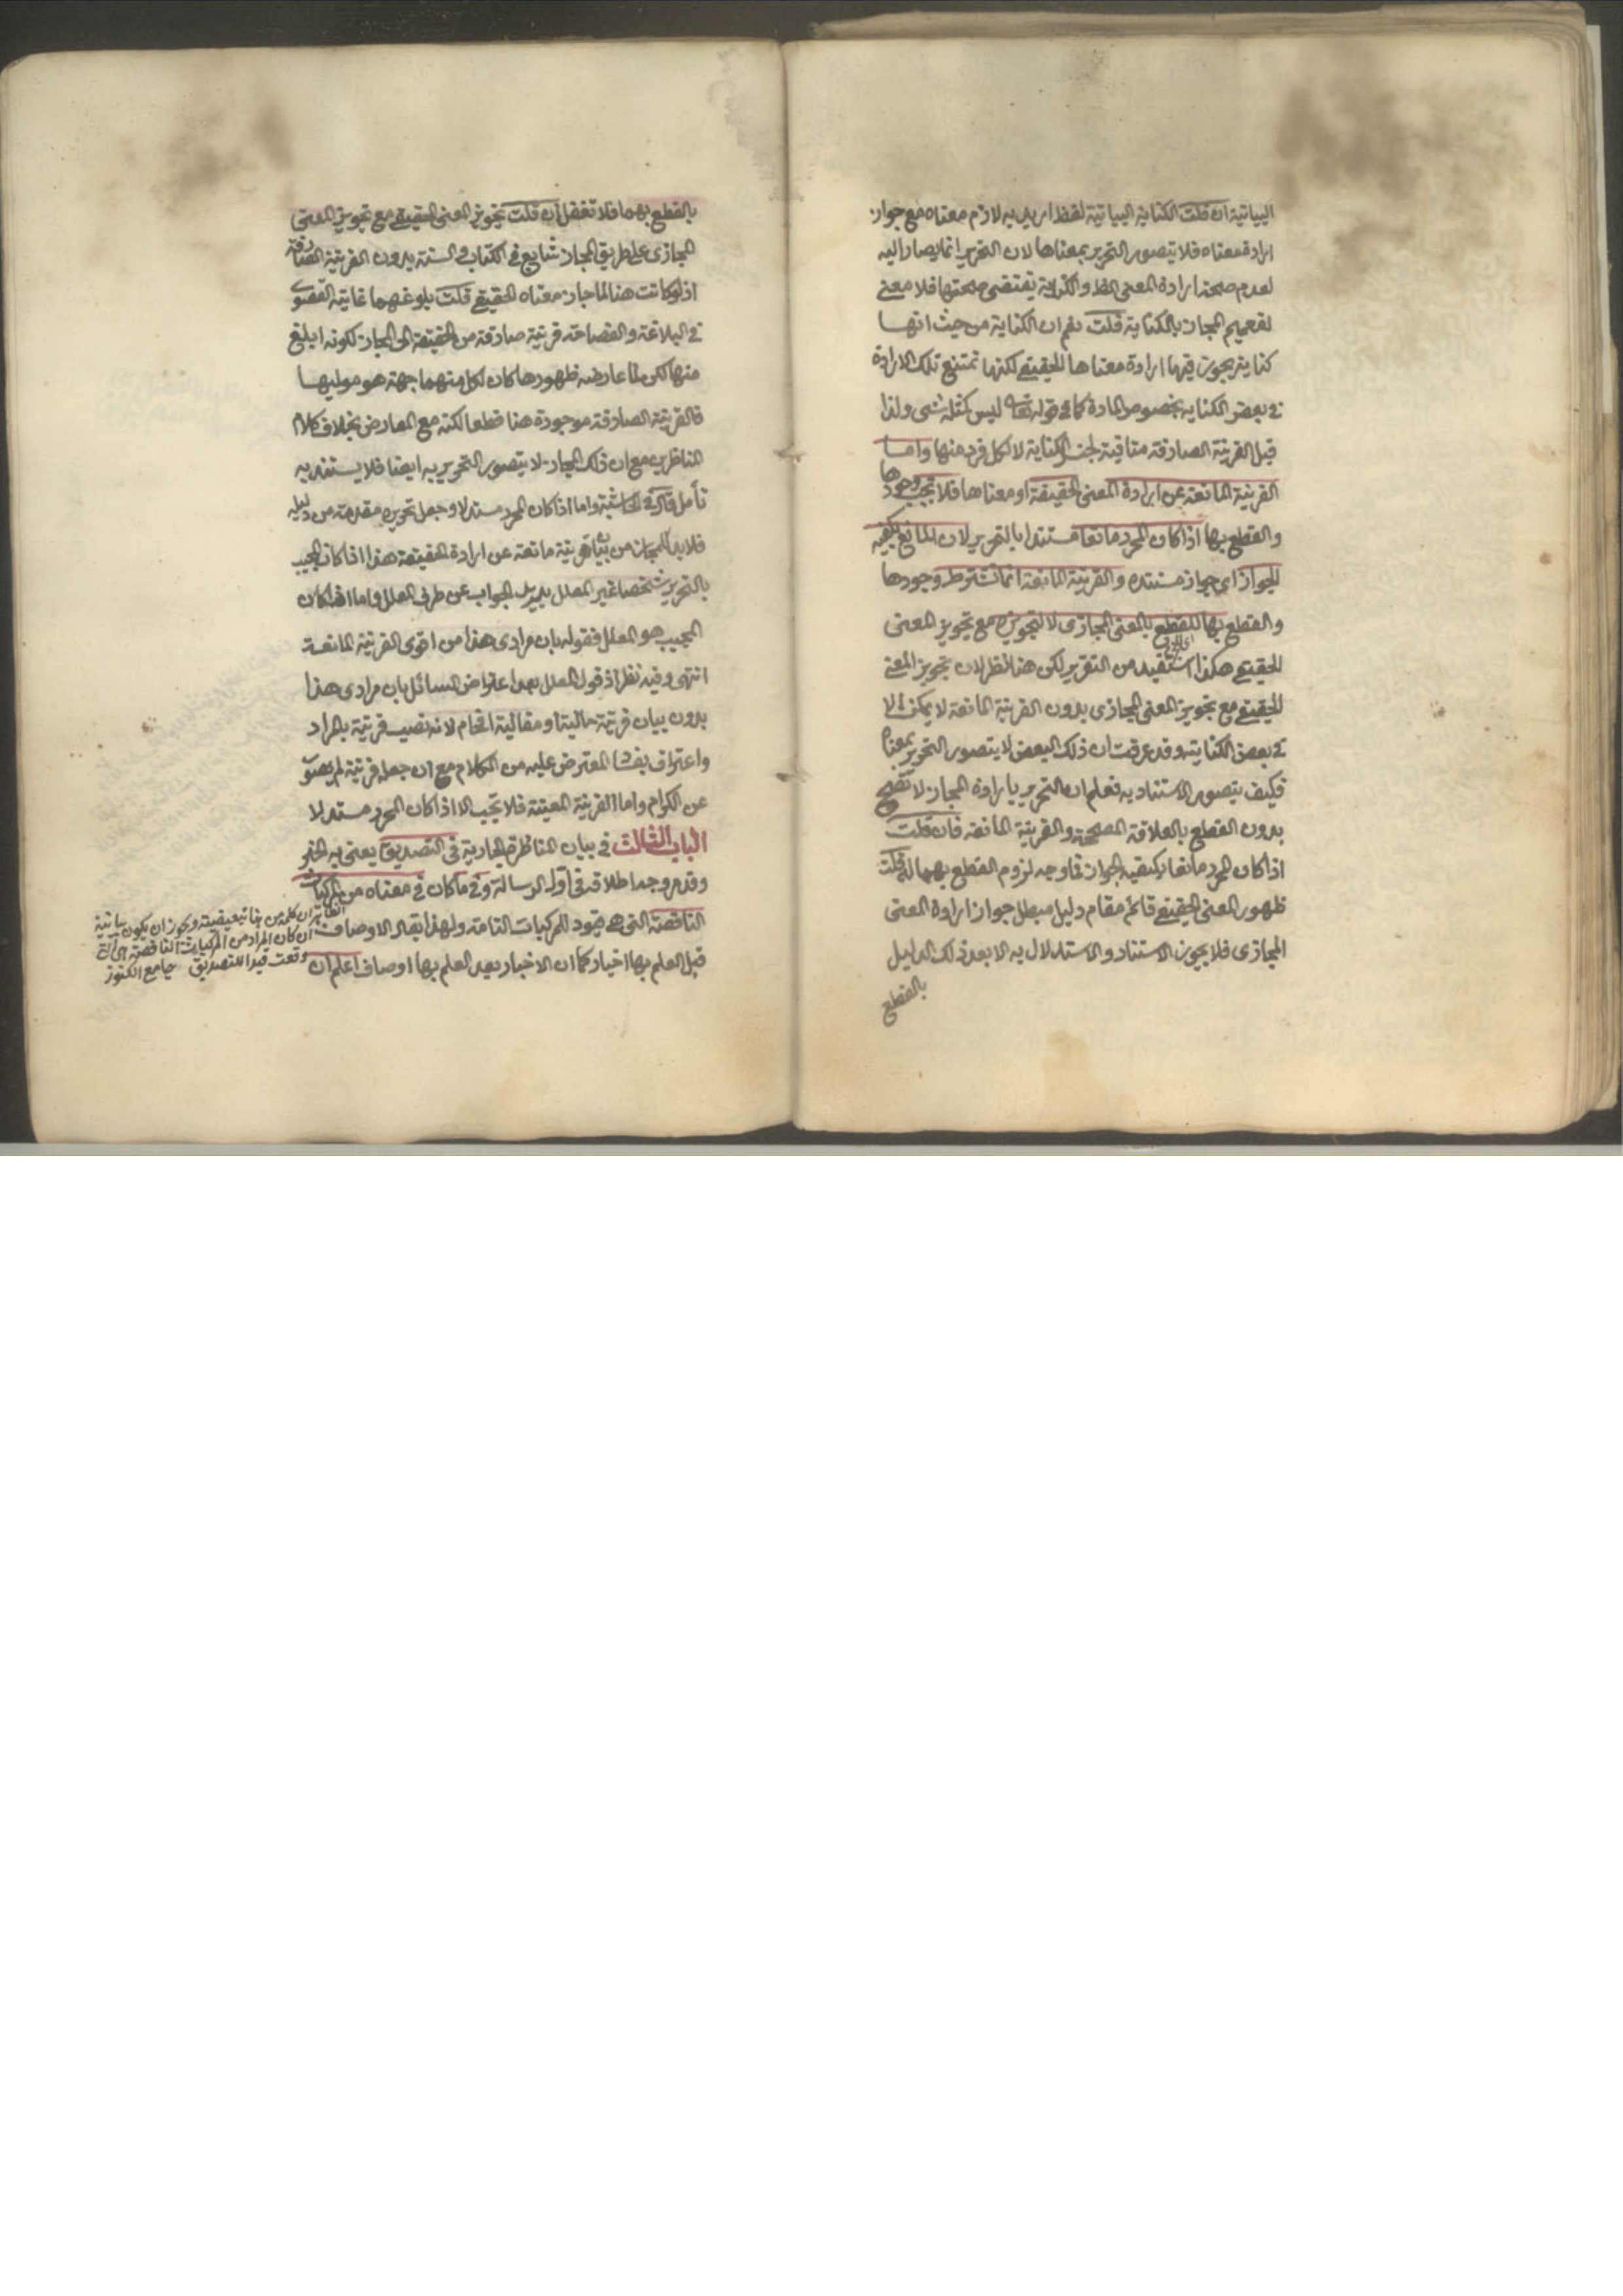 البيانية ان قلت الكناية البيانية لفظ اريد به لازم معناه مع جواز
ارادة معناه فلا يتصور التحرير بمعناها لان التحرير انما يصار اليه
لعدم صحة ارادة المعنى الظ والكناية تقتضى صحتها فلا معنى
لتعميم المجاز بالكناية قلت نعم ان الكناية من حيث انها
كناية يجوز فيها ارادة معناها الحقيقى لكنها تمتنع تلك الارادة
فى بعض الكناية بخصوص المادة كما فى قوله تعالى ليس كمثله شى ولذا
قيل القرينة الصارفة منافية لجنس الكناية لا لكل فرد منها واما
القرينة المانعة عن ارادة المعنى الحقيقة او معناها فلا تجب وجودها
والقطع بها اذا كان المحرر مانعا مستندا بالتحرير لان المانع يكفيه
الجواز اى جواز مستنده والقرينة المانعة انما تشترط وجودها
والقطع بها للقطع بالمعنى المجازى لا لتجويزه مع تجويز المعنى
الحقيقى هكذا استفيد من التقرير لكن هنا نظر لان تجويز المعنى
الحقيقى مع تجويز المعنى المجازى بدون القرينة المانعة لا يمكن الا
فى بعض الكناية وقد عرفت ان ذلك البعض لا يتصور التحرير بمعناه
فكيف يتصور الاستناد به فعلم ان التحرير بارادة المجاز لا تصح
بدون القطع بالعلاقة المصححة والقرينة المانعة فان قلت
اذا كان المحرر مانعا يكفيه الجواز فما وجه لزوم القطع بهما له قلت
ظهور المعنى الحقيقى قائم مقام دليل مبطل جواز ارادة المعنى
المجازى فلا يجوز الاستناد والاستدلال به الا بعد ذلك الدليل
بالقطع
بالقطع بهما فلا تغفل ان قلت تجويز المعنى الحقيقى مع تجويز المعنى
المجازى على طريق المجاز شايع فى الكتاب والسنة بدون القرينة الصارفة
اذ لو كانت هنا لما جاز معناه الحقيقى قلت بلوغهما غاية القصوى
فى البلاغة والفصاحة قرينة صارفة من الحقيقة الى المجاز لكونه ابلغ
منها لكن لما عارضه ظهورها كان لكل منهما جهة هو موليها
فالقرينة الصارفة موجودة هنا قطعا لكنه مع المعارض بخلاف كلام
المناظرين مع ان ذلك المجاز لا يتصور التحرير به ايضا فلا يستند به
تأمل قاله فى الحاشية واما اذا كان المحرر مستدلا وجعل تحريره مقدمة من دليله
فلا بد للمجاز من بيان قرينة مانعة عن ارادة الحقيقة هذا اذا كان المجيب
بالتحرير شخصا غير المعلل يريد الجواب عن طرف المعلل واما اذا كان
المجيب هو المعلل فقوله بان مرادى هذا من اقوى القرينة المانعة
انتهى وفيه نظر اذ قول المعلل بعد اعتراض السائل بان مرادى هذا
بدون بيان قرينة حالية او مقالية افحام لانه نصب قرينة بالمراد
واعتراف بفساد المعترض عليه من الكلام مع ان جعله قرينة لم يصدر
عن الكرام واما القرينة المعينة فلا تجب الا اذا كان المحرر مستدلا
الباب الثالث فى بيان المناظرة الجارية فى التصديق يعنى به الخبر
وقد مر وجه اطلاقه فى اول الرسالة وفى ما كان فى معناه من المركبات
الناقصة التى هى قيود للمركبات التامة ولهذا يقال الاوصاف
قبل العلم بها اخبار كما ان الاخبار بعد العلم بها اوصاف اعلم ان
الظاهر ان كلمة من هنا تبعيضية ويجوز ان يكون بيانية
ان كان المراد من المركبات الناقصة هى التى
وقعت قيدا للتصديق جامع الكنوز